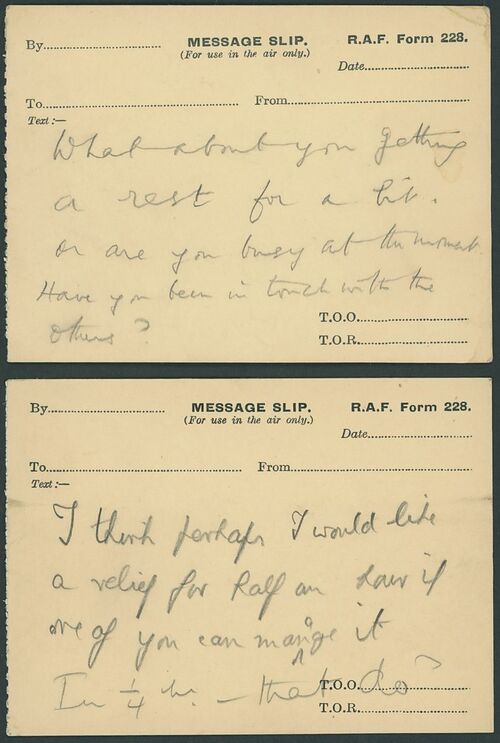 By
MESSAGE SLIP.
R.A.F. Form 228.
(For use in the air only.)
Date
To
From
Text :—
What about you getting
a rest for a bit.
or are you busy at the moment
Have you been in touch with the
others?
T.O.O.
T.O.R.
By
MESSAGE SLIP.
R.A.F. Form 228.
(For use in the air only.)
Date
To
From
Text :—
I think perhaps I would like
a relief for half an hour if
one of you can manage it
In ¼ hr. — that do?
T.O.O.
T.O.R.